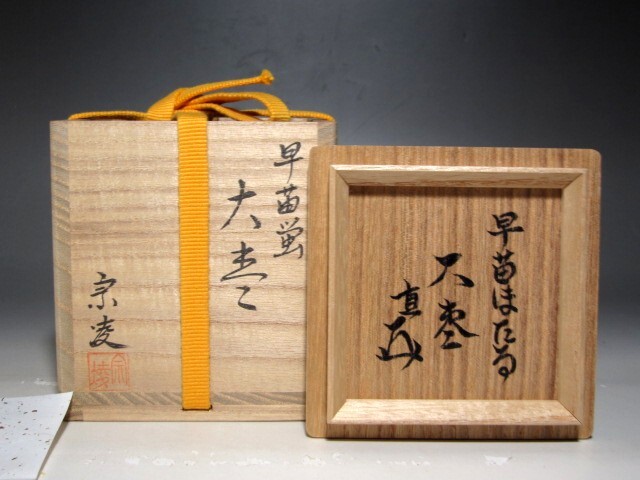 早苗蛍
大棗
宗凌
宗凌
早苗ほたる
大棗
直斎